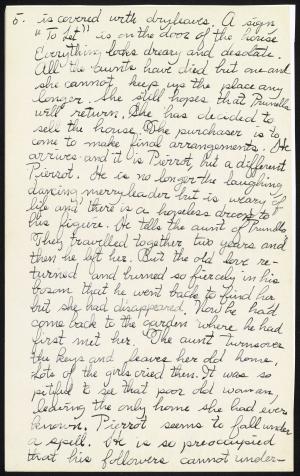 5. is covered with dry leaves. A sign
"To Let" is on the door of the house
Everything looks dreary and desolate.
All the aunts have died but one and
she cannot keep up the place any
longer. She still hopes that Prunella
will return. She has decided to
sell the house. The purchaser is to
come to make final arrangements. He
arrives and it is Pierrot, but a different
Pierrot. He is no longer the laughing
dancing merry leader but is weary of
life and there is a hopeless droop to
his figure. He tells the aunt of Prunella
They travelled together two years and
then he left her. But the old love re-
turned and burned so fiercely in his
bosom that he went back to find her
but she had disappeared. Now he had
come back to the garden where he had
first met her. The aunt turns over
the keys and leaves her old home.
Lots of the girls cried then. It was so
pitiful to see that poor old woman,
leaving the only home she had ever
known. Pierrot seems to fall under
a spell. He is so preoccupied
that his followers cannot under-